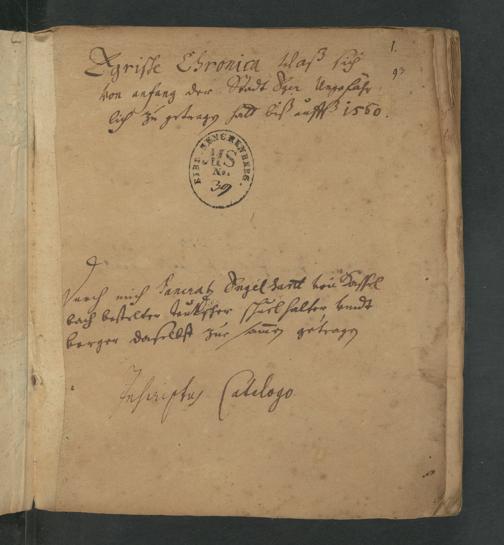 1.
Egrische Chronica Waß sich
von anfang der Stadt Eger Ungefähr
lich zu getragen hatt biß auffß 1560.
BIBL. SENCKENBERG.
MS
No.
39
Durch mich Pancratz Engelhartt von Hassel
bach bestelter teutscher schuel halter undt
burger daselbst zue samen getragen
Inscriptus Catalogo